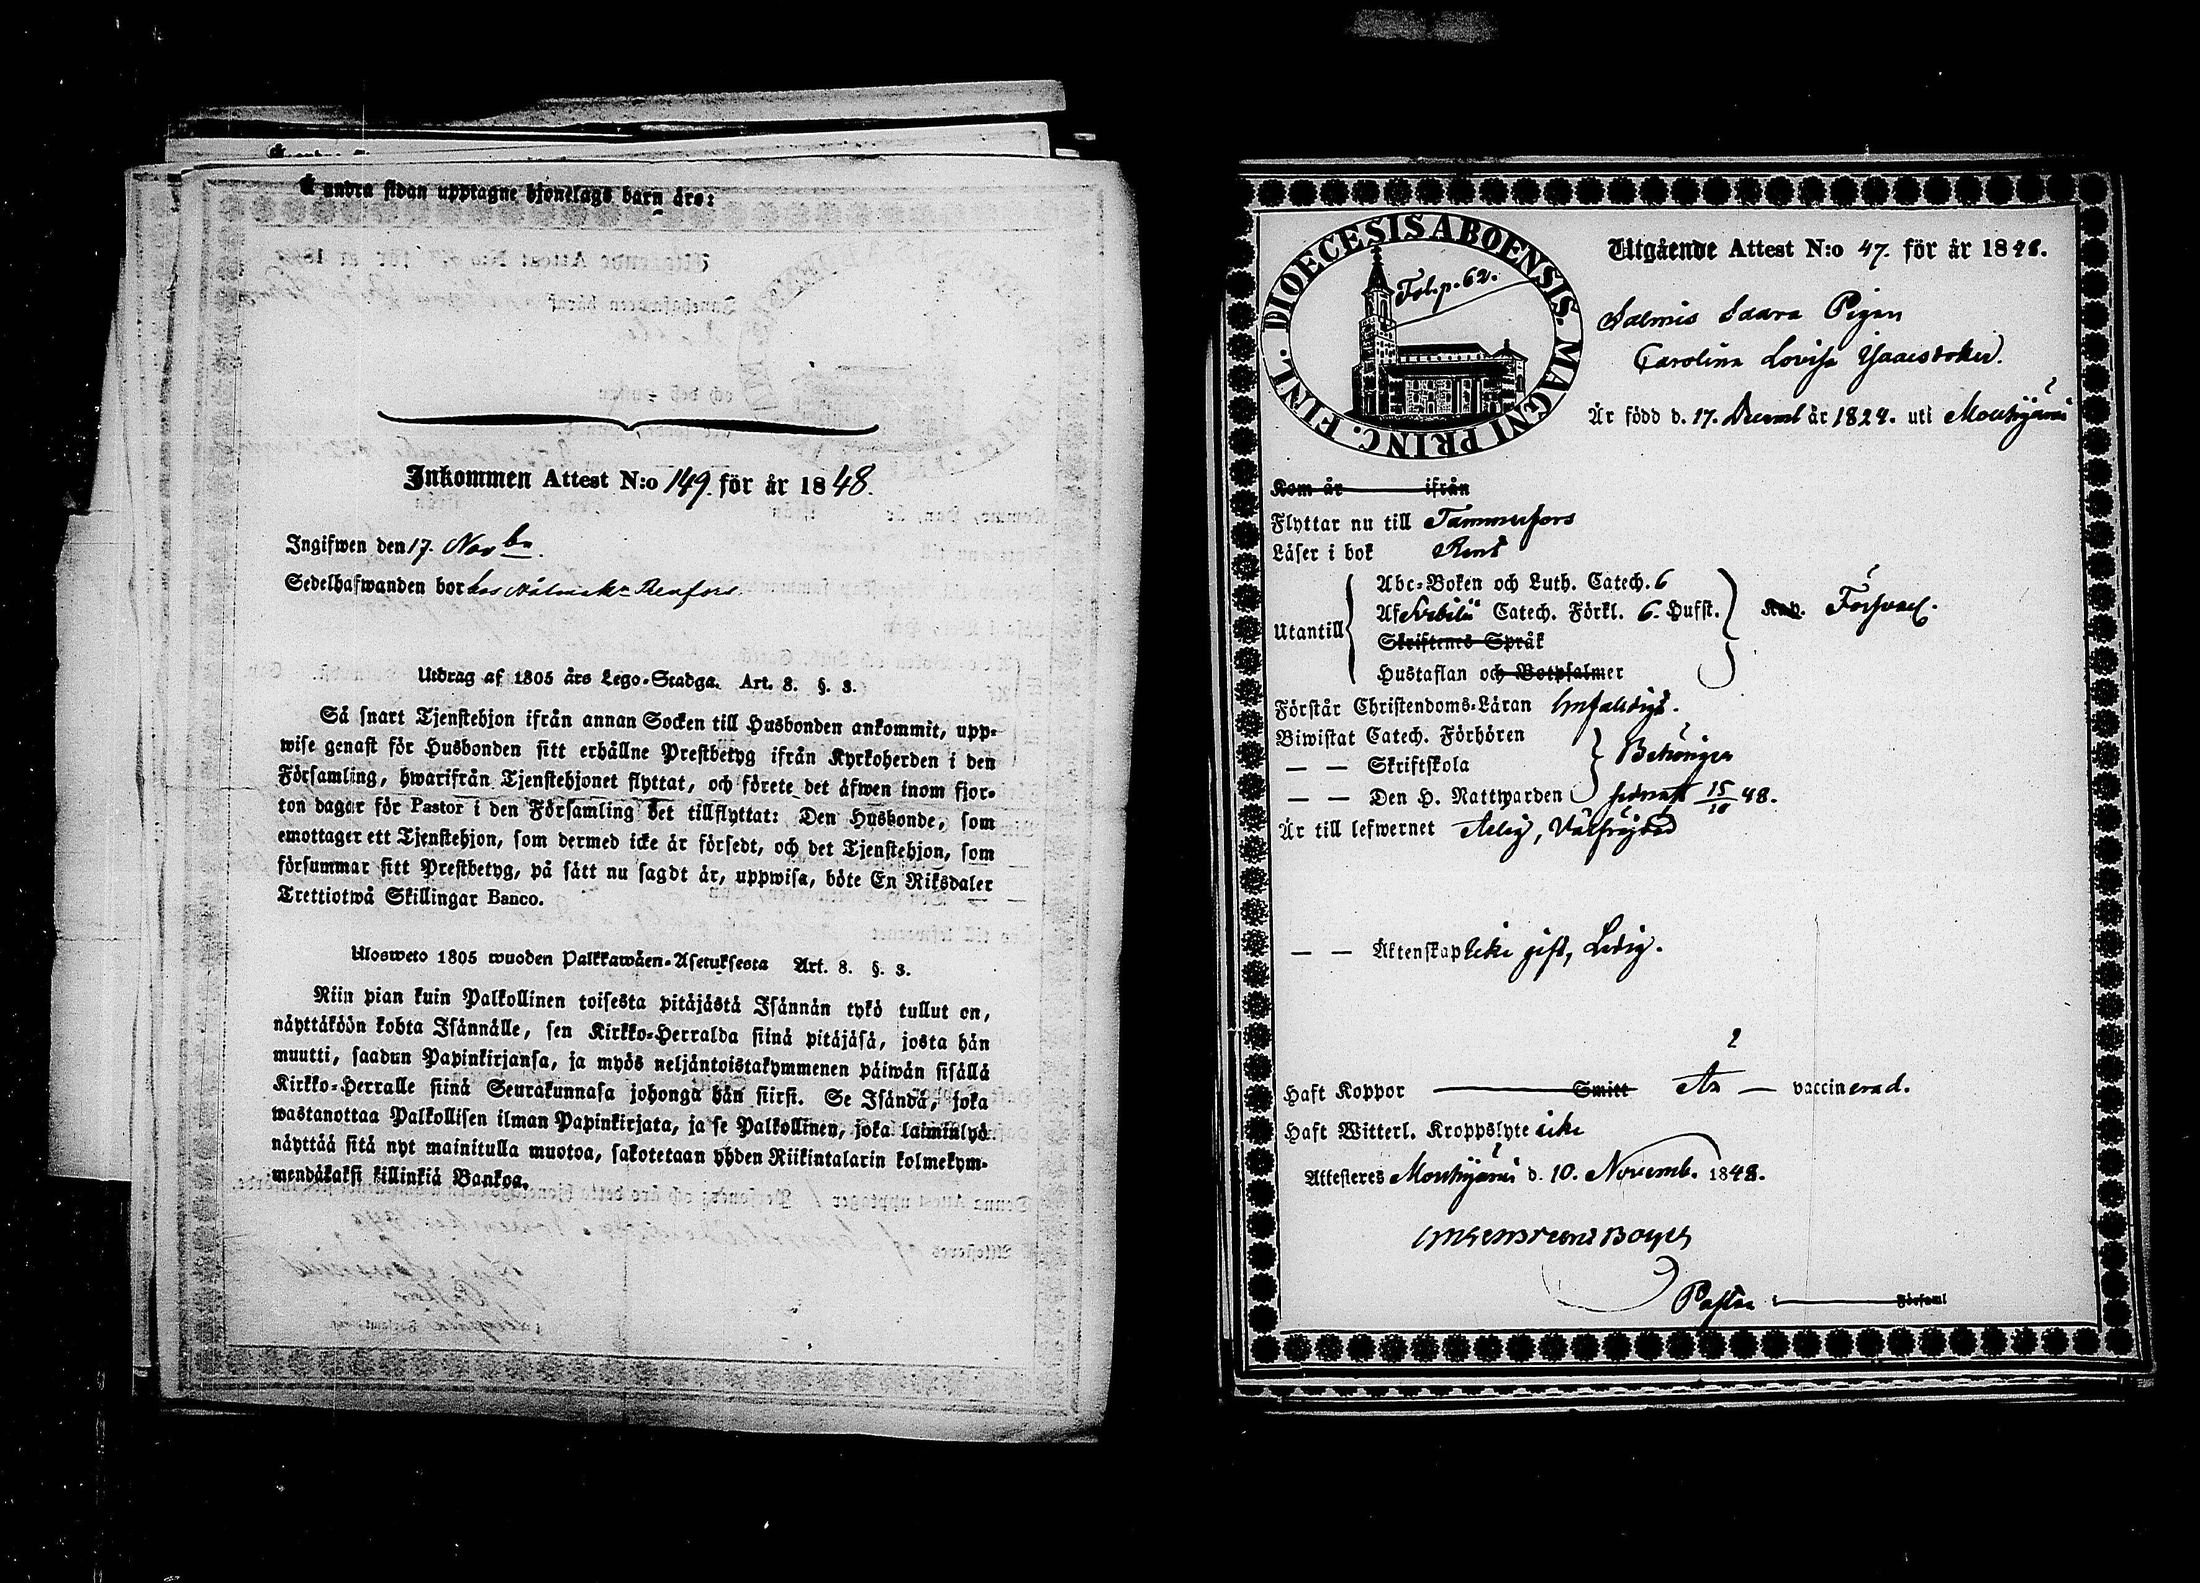 Å andra sidan upptagne hjonelags barn äro:
Inkommen Attest N:o 149. för år 1848.
Ingifwen den 17. Nov br.
Sedelhafwanden bor hos
Utdrag af 1805 års Lego-Stadga. Art. 8. §. 3.
Så snart Tjenstehjon ifrån annan Socken till Husbonden ankommit, upp-
wise genast för Husbonden sitt erhållne Prestbetyg ifrån Kyrkoherden i den
Församling, hwarifrån Tjenstehjonet flyttat, och förete det äfwen inom fjor-
ton dagar för Pastor i den Församling det tillflyttat: Den Husbonde, som
emottager ett Tjenstehjon, som dermed icke är försedt, och det Tjenstehjon, som
försummar sitt Prestbetyg, på sätt nu sagdt är, uppwisa, böte En Riksdaler
Trettiotwå Skillingar Banco.
Ulosweto 1805 wuoden Palkkawäen-Asetuksesta Art. 8. §. 3.
Niin pian kuin Palkollinen toisesta pitäjästä Isännän tykö tullut on,
näyttäköön kohta Isännälle, sen Kirkko-Herralda siinä pitäjäsä, josta hän
muutti, saadun Papinkirjansa, ja myös neljäntoistakymmenen päiwän sisällä
Kirkko-Herralle siinä Seurakunnasa johonga hän siirsi. Se Isändä, joka
wastanottaa Palkollisen ilman Papinkirjata, ja se Palkollinen, joka laiminlyö
näyttää sitä nyt mainitulla muotoa, sakotetaan yhden Riikintalarin kolmekym-
mendäkaksi killinkiä Bankoa.
DIOECESIS ABOENSIS. MAGNI PRINC. FINL.
Fol. p. 62.
Utgående Attest N:o 47. för år 1848.
Salmis Saara Pigan
Carolina Lovisa
Är född d. 17. Decemb år 1824. uti Mouhijärvi
Kom år ifrån
Flyttar nu till Tammerfors
Läser i bok Rent
Utantill
Abc-Boken och Luth. Catech. 6
Af Svebilii Catech. Förkl. 6. Hufst.
Skriftenes Språk
Hustaflan och Botpsalmer
Kap. Försvarl.
Förstår Christendoms-Läran Enfaldigt.
Biwistat Catech. Förhören
— — Skriftskola
— — Den H. Nattwarden
Behörigen
senast 15/10 48.
Är till lefwernet Ärlig, Välfrejdad
— — Äktenskap icke gift, Ledig.
Haft Koppor Smitt Är — vaccinerad.
Haft Witterl. Kroppslyte icke
Attesteres Mouhijärvi d. 10. Novemb. 1848.
Pastor i Församl